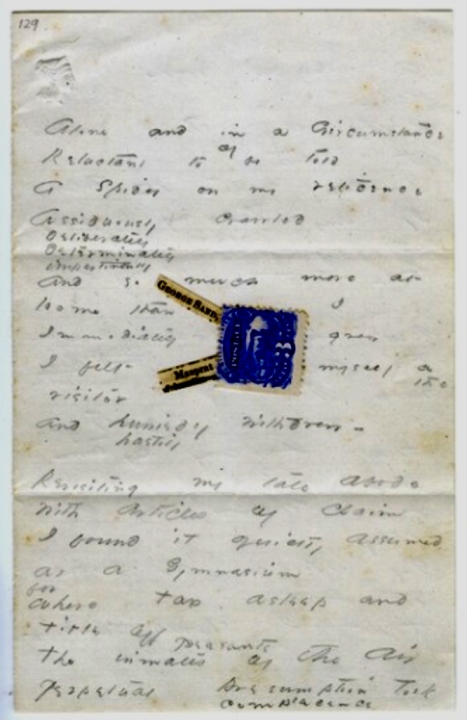 129
Alone and in a Circumstance
Reluctant to be told
of
A Spider on my reticence
Assiduously crawled
deliberately
determinately
impertinently
And so much more at
Home than I
Immediately grew
I felt myself a
the
visitor
And hurriedly withdrew -
hastily
Revisiting my late abode
With articles of claim
I found it quietly assumed
as a Gymnasium
for
where tax asleep and
title off
peasants
The inmates of the Air
Perpetual presumption took
complacence
GEORGE SAND
Mauprat
POSTAGE
3